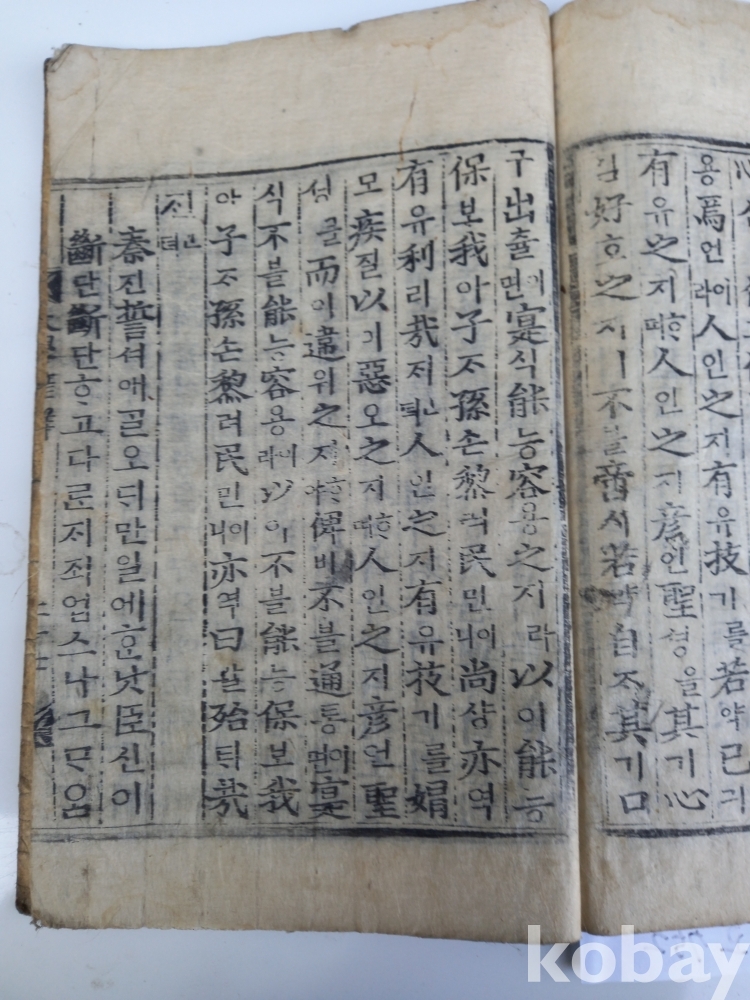 용焉언이라人인之지有유技기를若약己긔
有유之지ᄒᆞ며人인之지彦언聖셩을其기心
심好호之지ㅣ不불啻시若약自ᄌᆞ其기口
구出츌이면寔식能능容용之지라以이能능
保보我아子ᄌᆞ孫손黎려民민이니尙샹亦역
有유利리哉ᄌᆡ뎌人인之지有유技기를媢
모疾질以이惡오之지ᄒᆞ며人인之지彦언聖
셩을而이違위之지ᄒᆞ야俾비不불通통이면寔
식不불能능容용이라以이不불能능保보我
아子ᄌᆞ孫손黎려民민이니亦역曰왈殆ᄐᆡ哉
秦진誓셔애ᄀᆞᆯ오ᄃᆡ만일에ᄒᆞᆫ낫臣신이
斷단斷단ᄒᆞ고다ᄅᆞᆫᄌᆡ죄업스나그ᄆᆞᄋᆞᆷ
kobay